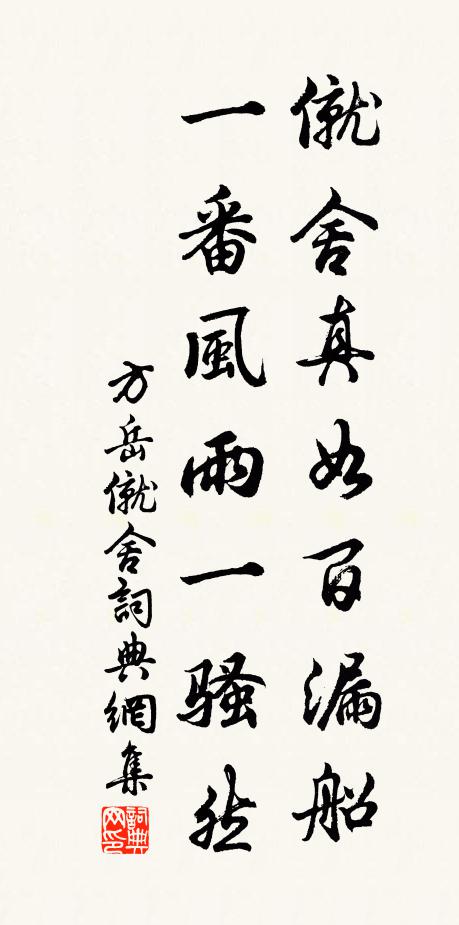 僦舍真如百漏船
一番風雨一騷然
方岳僦舍詞典網集
詞典网印